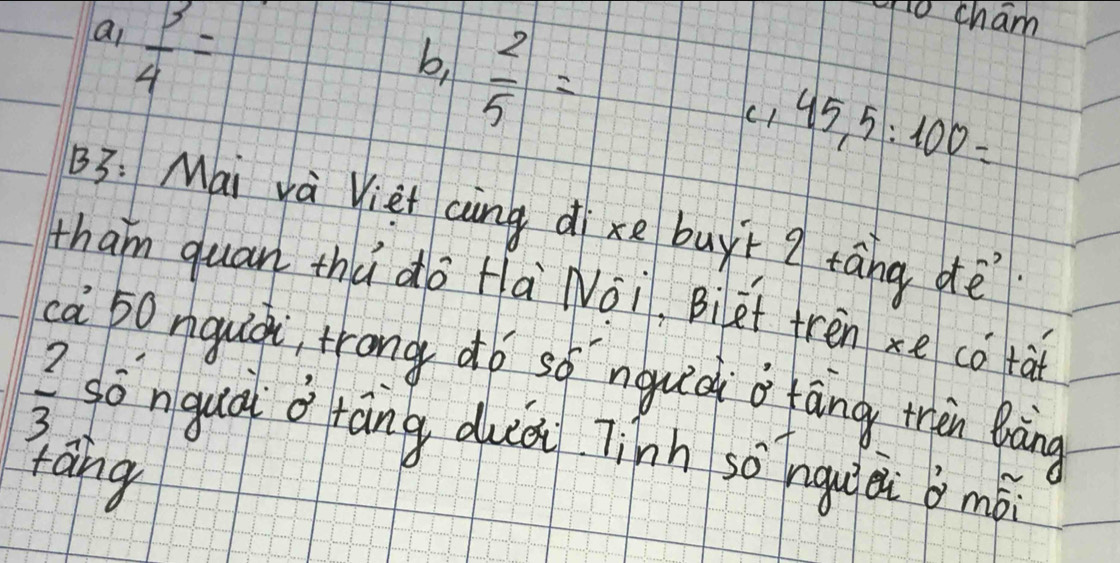 chấm
a, 3/4 =
b, 2/5 =
c, 45,5 : 100 =
B3: Mai và Việt cùng đi xe buýt 2 tầng để
thăm quan thủ đô Hà Nội. Biết trên xe có tất
cả 50 người, trong đó số người ở tầng trên bằng
2/3 số người ở tầng dưới. Tính số người ở mỗi
tầng